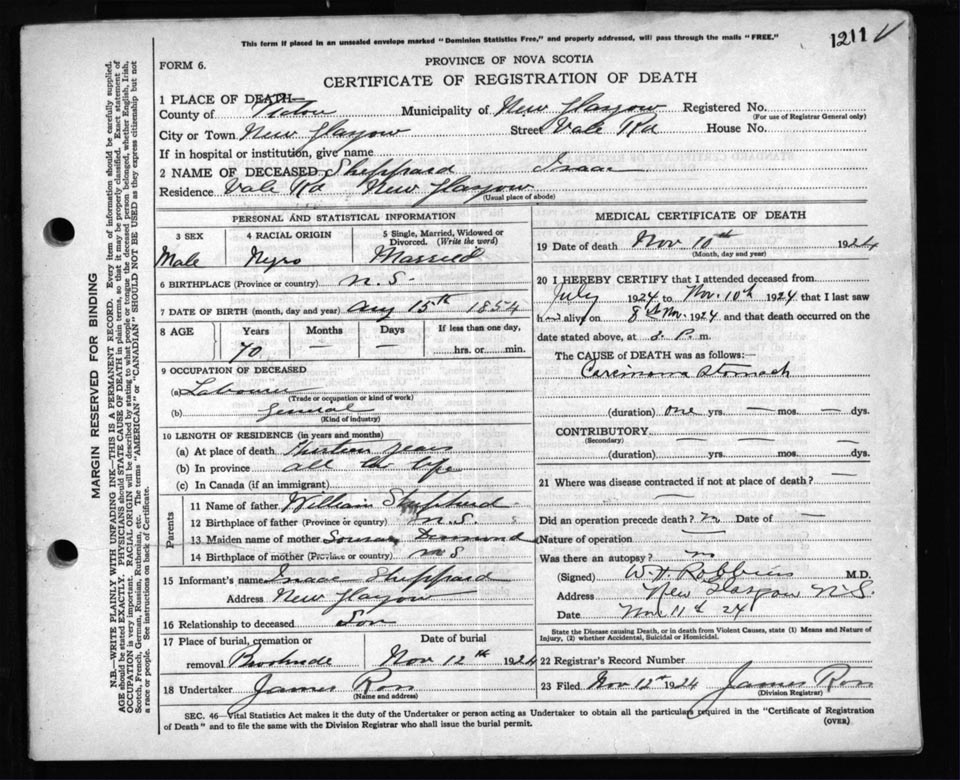 This form if placed in an unsealed envelope marked "Dominion Statistics Free," and properly addressed, will pass through the mails "FREE."
1211 ✓
FORM 6.
PROVINCE OF NOVA SCOTIA
CERTIFICATE OF REGISTRATION OF DEATH
MARGIN RESERVED FOR BINDING
N.B.—WRITE PLAINLY WITH UNFADING INK—THIS IS A PERMANENT RECORD. Every item of information should be carefully supplied.
AGE should be stated EXACTLY. PHYSICIANS should STATE CAUSE OF DEATH in plain terms, so that it may be properly classified. Exact statement of
OCCUPATION is very important. RACIAL ORIGIN will be described by stating to what people or tongue the deceased person belonged, whether English, Irish,
Scotch, French, German, Russian, Ruthenian, etc. The terms "AMERICAN" or "CANADIAN" SHOULD NOT BE USED as they express citizenship but not
a race or people. See instructions on back of Certificate.
1 PLACE OF DEATH—
County of Pictou Municipality of New Glasgow Registered No.
(For use of Registrar General only)
City or Town New Glasgow Street Vale Rd House No.
If in hospital or institution, give name
2 NAME OF DECEASED Sheppard Isaac
Residence Vale Rd New Glasgow
(Usual place of abode)
PERSONAL AND STATISTICAL INFORMATION
3 SEX 4 RACIAL ORIGIN 5 Single, Married, Widowed or Divorced. (Write the word)
Male Negro Married
6 BIRTHPLACE (Province or country) N.S.
7 DATE OF BIRTH (month, day and year) Aug 15th 1854
8 AGE Years Months Days If less than one day,
70 — — hrs. or min.
9 OCCUPATION OF DECEASED
(a) Labourer
(Trade or occupation or kind of work)
(b) General
(Kind of industry)
10 LENGTH OF RESIDENCE (in years and months)
(a) At place of death years
(b) In province all his life
(c) In Canada (if an immigrant)
Parents
11 Name of father William Shepherd
12 Birthplace of father (Province or country) N.S.
13 Maiden name of mother
14 Birthplace of mother (Province or country) N S
15 Informant's name Isaac Sheppard
Address New Glasgow
16 Relationship to deceased Son
17 Place of burial, cremation or Date of burial
removal Nov 12th 1924
18 Undertaker James Ross
(Name and address)
MEDICAL CERTIFICATE OF DEATH
19 Date of death Nov 10th 1924
(Month, day and year)
20 I HEREBY CERTIFY that I attended deceased from
July 1924 to Nov. 10th 1924 that I last saw
h alive on 8th Nov. 1924 and that death occurred on the
date stated above, at 2 P. m.
The CAUSE of DEATH was as follows:—
Carcinoma Stomach
(duration) one yrs. — mos. — dys.
CONTRIBUTORY —
(Secondary)
(duration) — yrs. — mos. — dys.
21 Where was disease contracted if not at place of death? —
Did an operation precede death? no Date of —
Nature of operation —
Was there an autopsy? no
(Signed) W. H. Robbins M.D.
Address New Glasgow N.S.
Date Nov 11th 24
State the Disease causing Death, or in death from Violent Causes, state (1) Means and Nature of
Injury, (2) whether Accidental, Suicidal or Homicidal.
22 Registrar's Record Number
23 Filed Nov 12th 1924 James Ross
(Division Registrar)
SEC. 46—Vital Statistics Act makes it the duty of the Undertaker or person acting as Undertaker to obtain all the particulars required in the "Certificate of Registration
of Death" and to file the same with the Division Registrar who shall issue the burial permit.
(OVER)